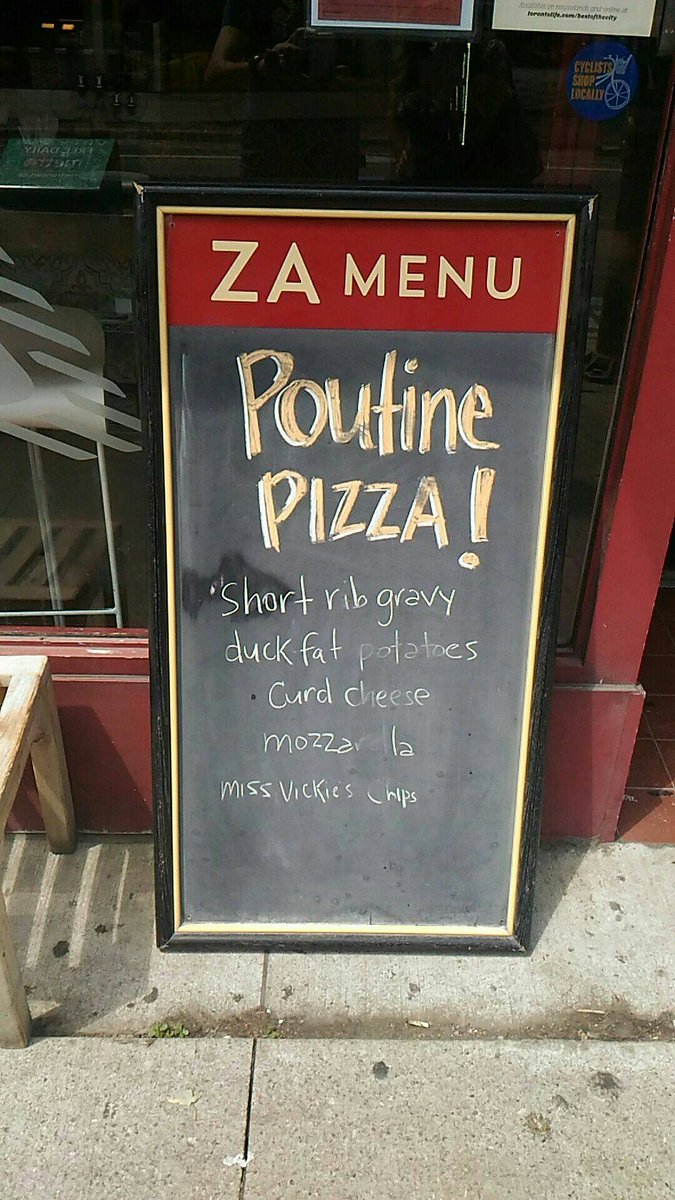 Available on newsstands and online at
torontolife.com/bestofthecity
CYCLISTS
SHOP
LOCALLY
ZA MENU
Poutine
PIZZA!
Short rib gravy
duck fat potatoes
Curd cheese
mozzarella
MISS VICKIE'S Chips